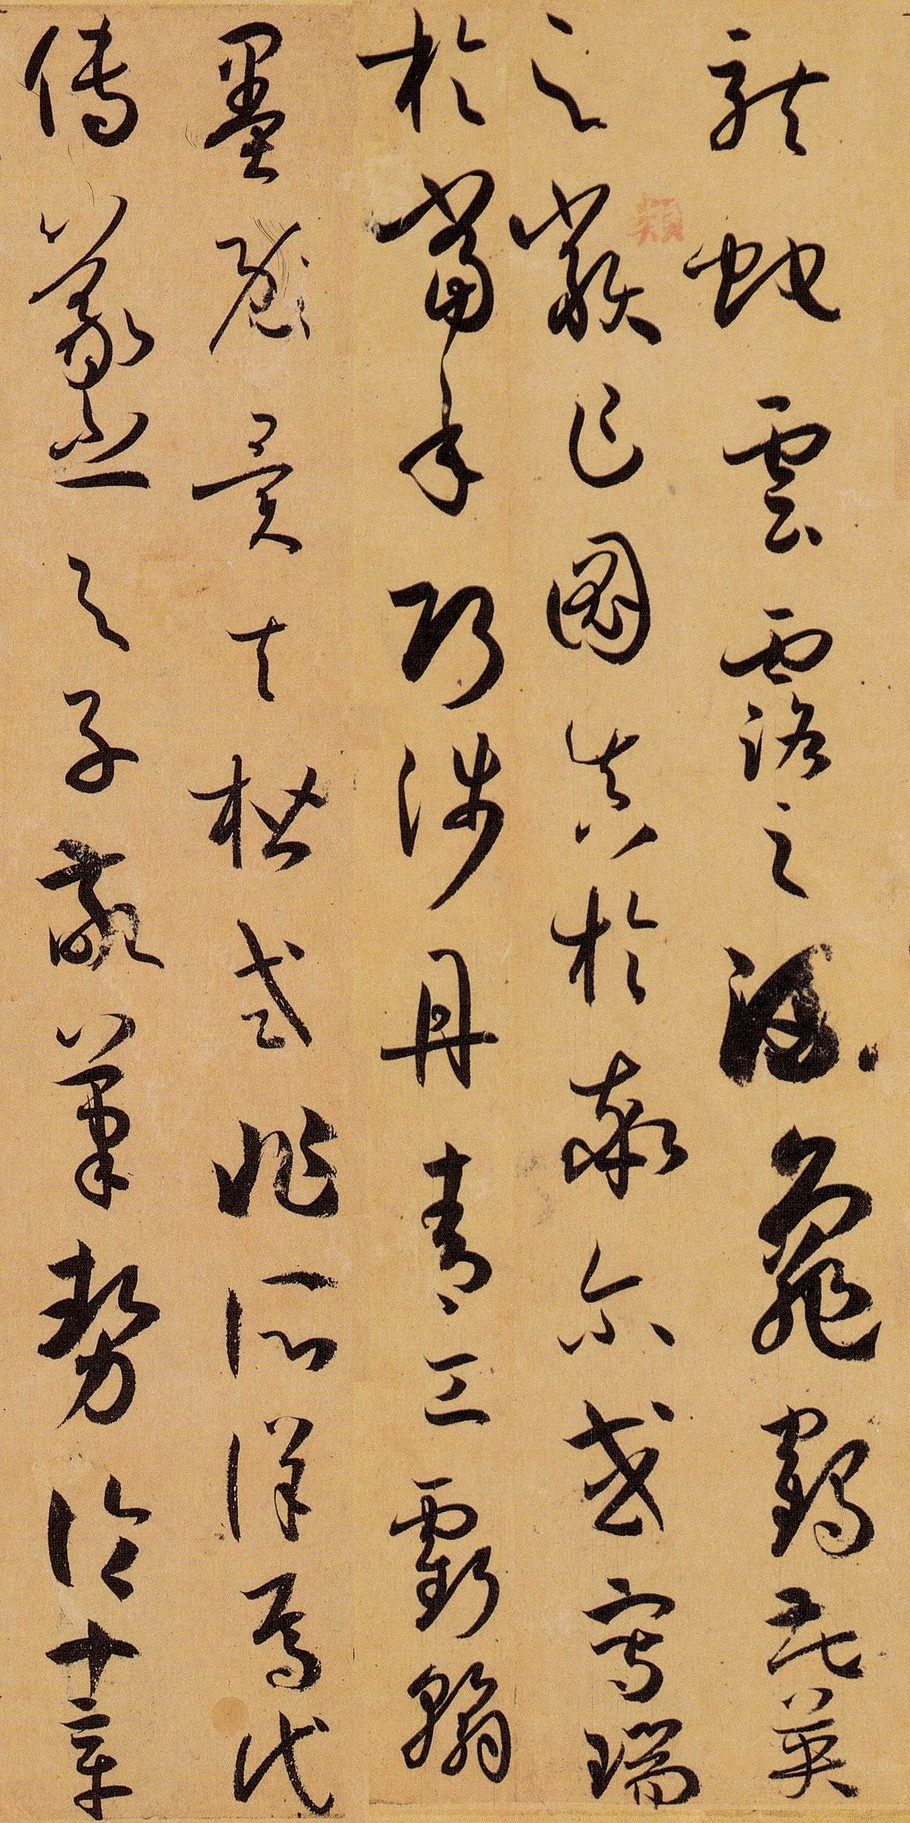 龍蛇雲露之流龜鶴花英
之類乍圖真於率爾或寫瑞
於當年巧涉丹青工虧翰
墨異夫楷式非所詳焉代
傳羲之與子敬筆勢論十章